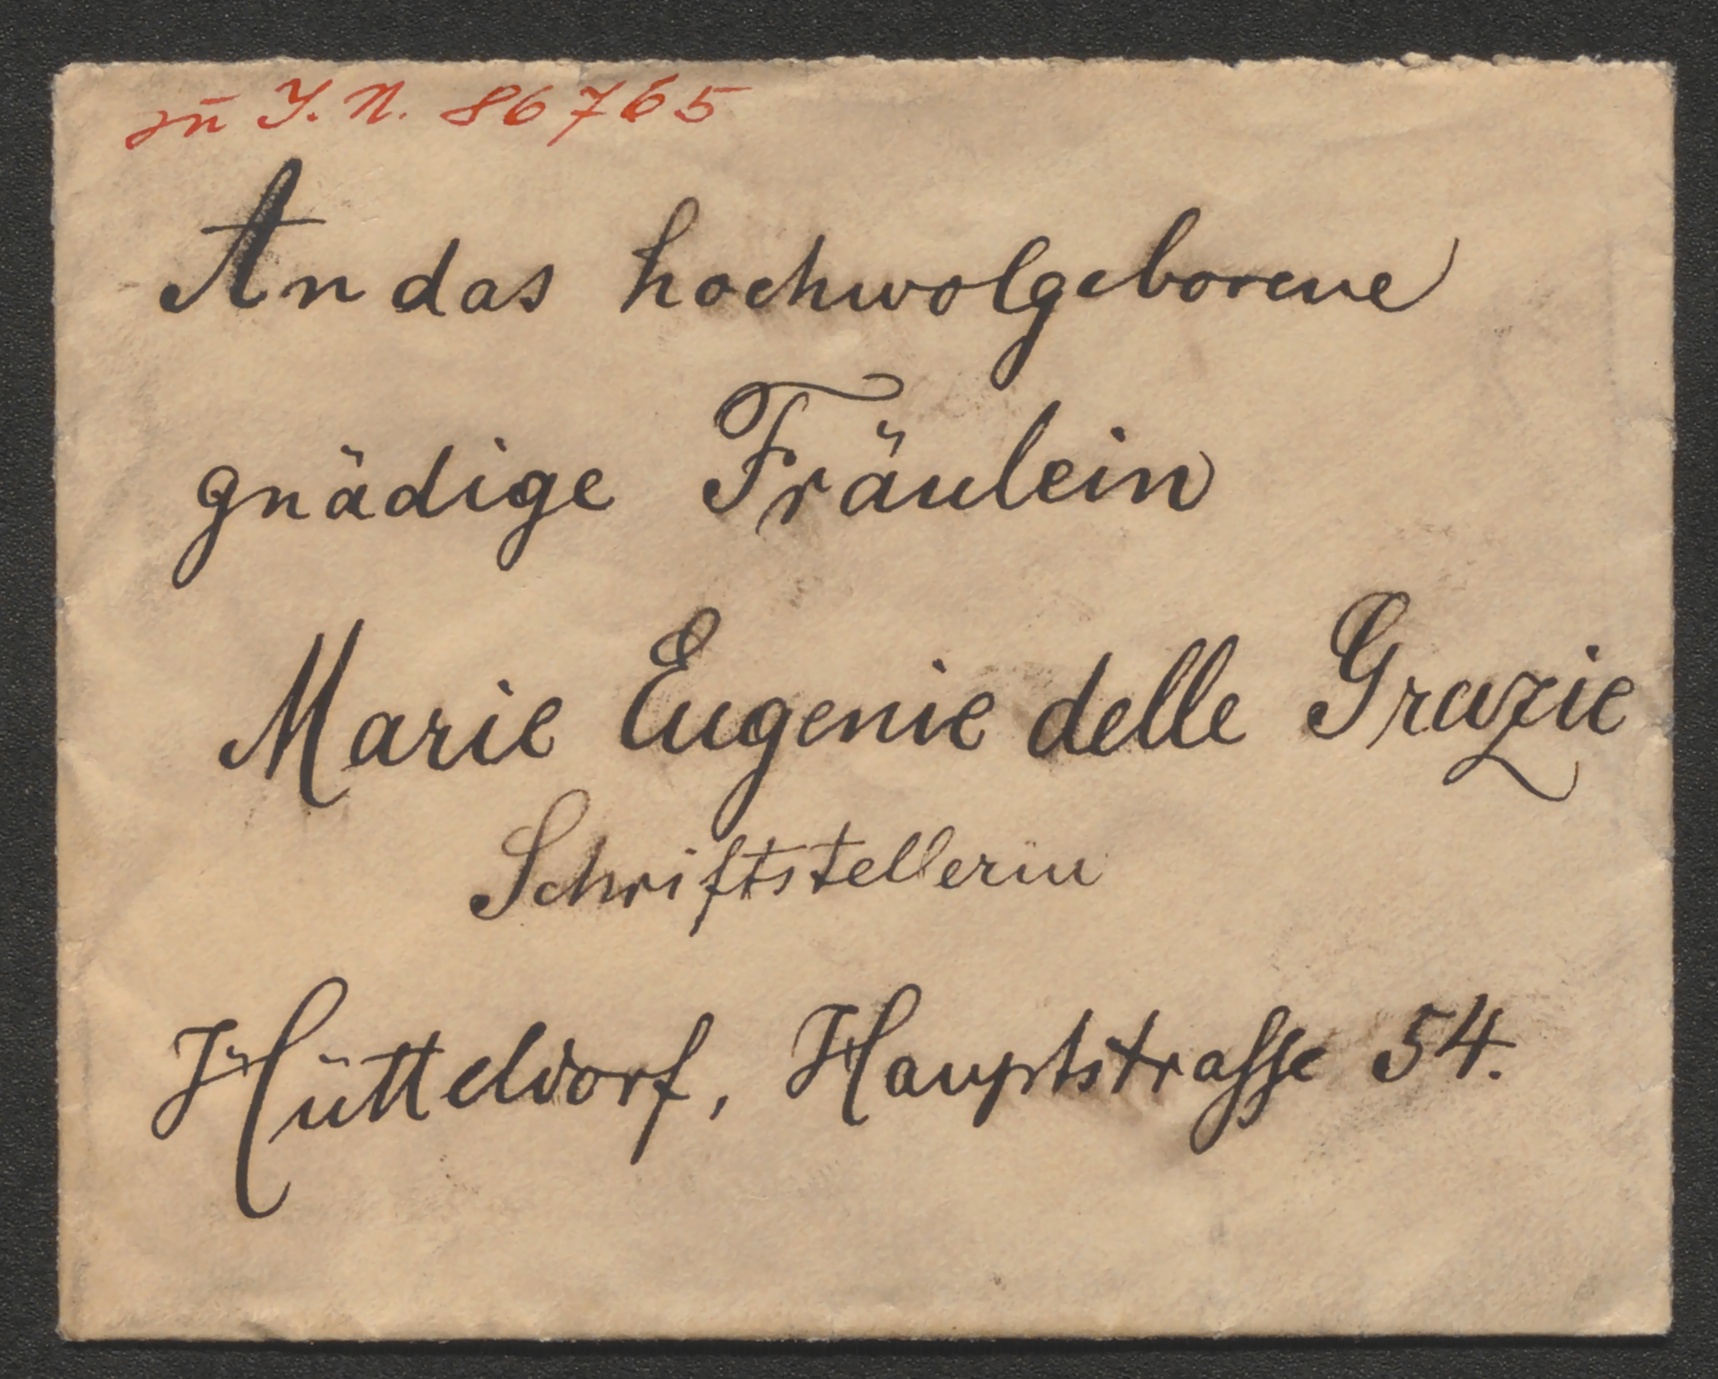 zu I. N. 86765
An das hochwolgeborene
gnädige Fräulein
Marie Eugenie delle Grazie
Schriftstellerin
Hütteldorf, Hauptstrasse 54.